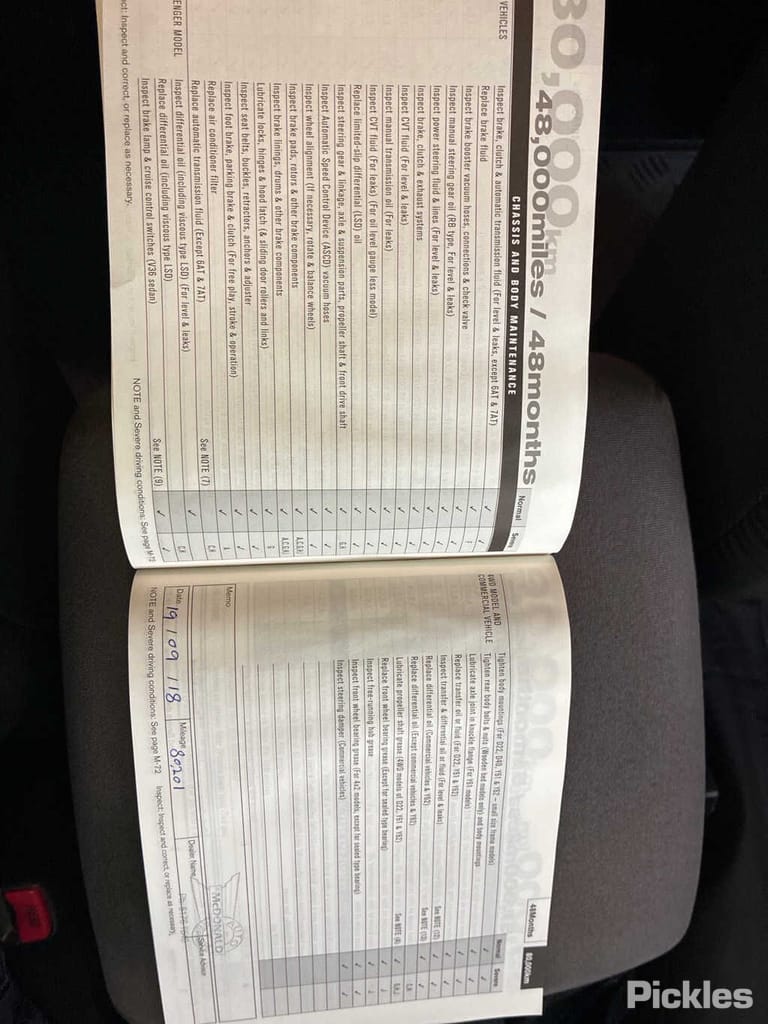 80,000km
48,000miles / 48months
CHASSIS AND BODY MAINTENANCE
Normal
Severe
VEHICLES
Inspect brake, clutch & automatic transmission fluid (For level & leaks, except 6AT & 7AT) ✓ ✓
Replace brake fluid ✓ ✓
Inspect brake booster vacuum hoses, connections & check valve ✓
Inspect manual steering gear oil (RB type, For level & leaks) ✓ ✓
Inspect power steering fluid & lines (For level & leaks) ✓ ✓
Inspect brake, clutch & exhaust systems ✓
Inspect CVT fluid (For level & leaks) ✓ ✓
Inspect manual transmission oil (For leaks) ✓ ✓
Inspect CVT fluid (For leaks) (For oil level gauge less model) ✓ ✓
Replace limited-slip differential (LSD) oil ✓ ✓
Inspect steering gear & linkage, axle & suspension parts, propeller shaft & front drive shaft ✓
Inspect Automatic Speed Control Device (ASCD) vacuum hoses ✓ ✓
Inspect wheel alignment (If necessary, rotate & balance wheels) ✓ ✓
Inspect brake pads, rotors & other brake components ✓
Inspect brake linings, drums & other brake components ✓
Lubricate locks, hinges & hood latch (& sliding door rollers and links) ✓ G
Inspect seat belts, buckles, retractors, anchors & adjuster ✓ ✓
Inspect foot brake, parking brake & clutch (For free play, stroke & operation) ✓ ✓
Replace air conditioner filter ✓ A
ENGER MODEL
Replace automatic transmission fluid (Except 6AT & 7AT) See NOTE (7)
Inspect differential oil (including viscous type LSD) (For level & leaks) ✓
Replace differential oil (including viscous type LSD)
Inspect brake lamp & cruise control switches (V36 sedan) See NOTE (9) ✓ ✓
NOTE and Severe driving conditions: See page M-72
ect: Inspect and correct, or replace as necessary.
48Months
80,000km
Normal
Severe
4WD MODEL AND
COMMERCIAL VEHICLE
Tighten body mountings (For D22, D40, Y61 & Y62 - small size frame models) ✓ ✓
Tighten rear body bolts & nuts (Wooden bed models only) and body mountings ✓ ✓
Lubricate axle joint in knuckle flange (For Y61 models)
Replace transfer oil or fluid (For D22, Y61 & Y62)
Inspect transfer & differential oil or fluid (For level & leaks) See NOTE (12)
Replace differential oil (Commercial vehicles & Y62) See NOTE (13)
Replace differential oil (Except commercial vehicles & Y62)
Lubricate propeller shaft grease (4WD models of D22, Y61 & Y62) See NOTE (6)
Replace front wheel bearing grease (Except for sealed type bearing)
Inspect free-running hub grease
Inspect front wheel bearing grease (For 4x2 models, except for sealed type bearing)
Inspect steering damper (Commercial vehicles)
Memo
Date 19/09/18
Mileage 80201
Dealer Name
Service Advisor
McDONALD
NOTE and Severe driving conditions: See page M-72
Inspect: Inspect and correct, or replace as necessary.
Pickles